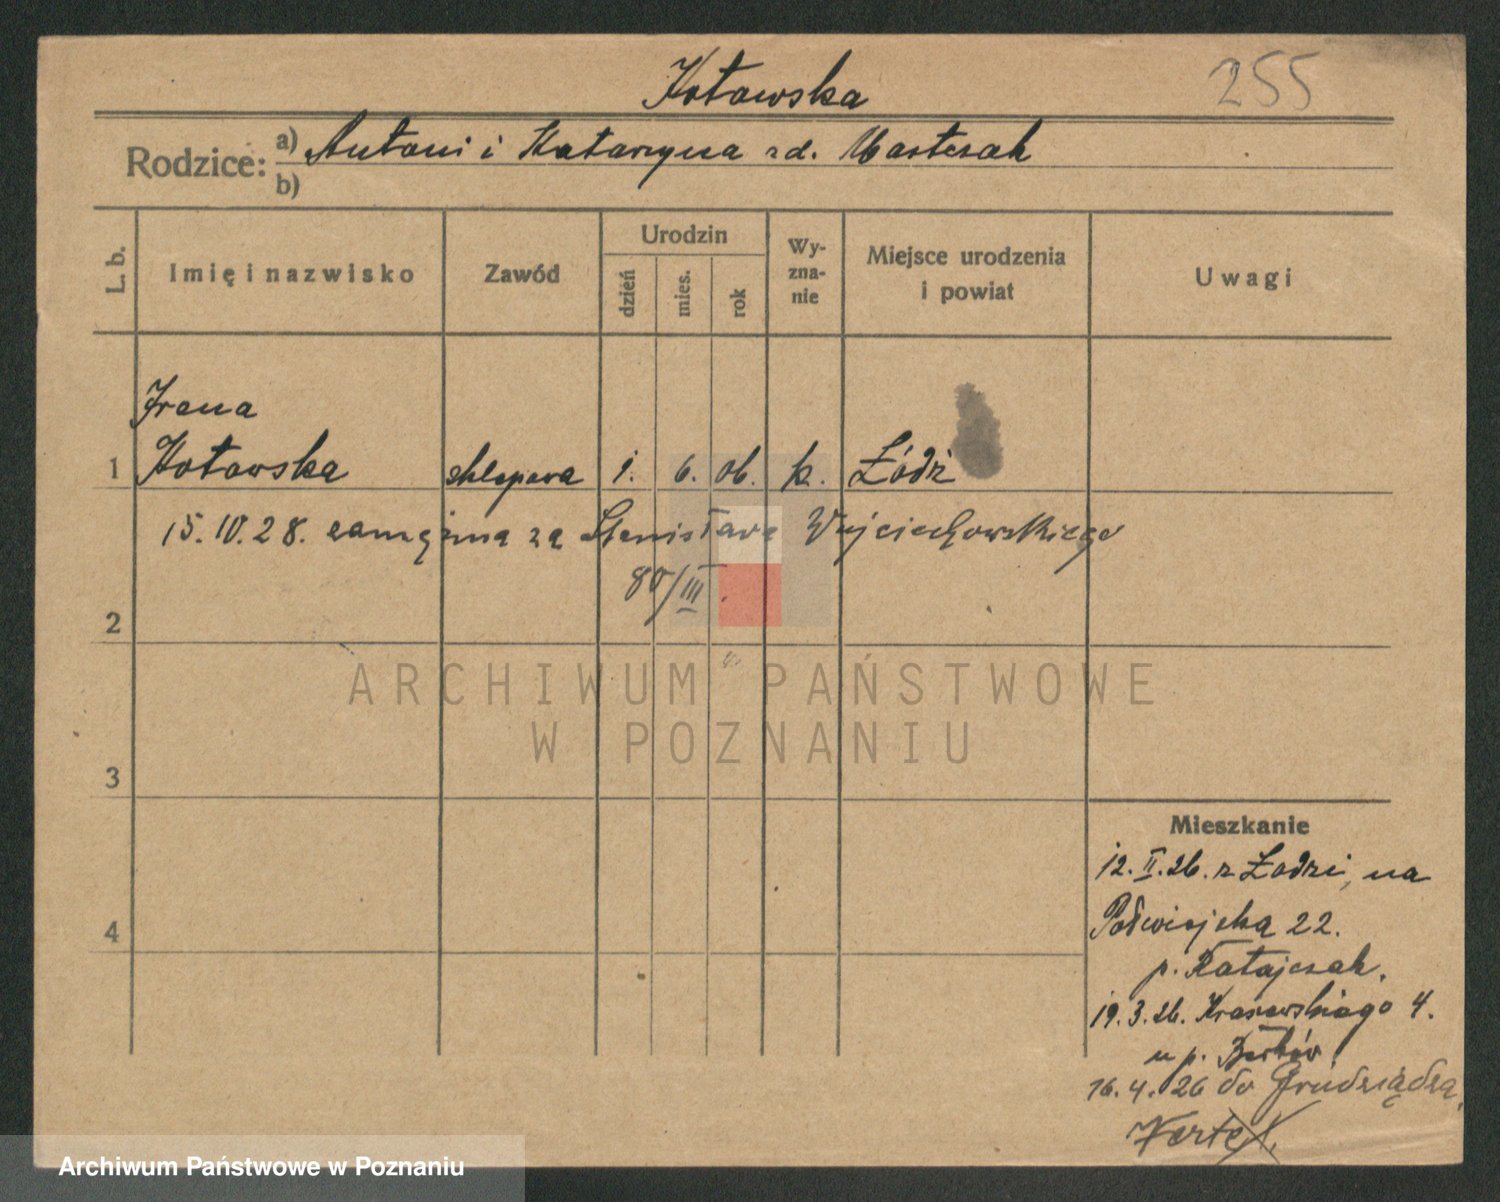 Kotowska
255
Rodzice:
a) Antoni i Katarzyna zd.
b)
L. b.
Imię i nazwisko
Zawód
Urodzin
dzień
mies.
rok
Wy-
zna-
nie
Miejsce urodzenia
i powiat
Uwagi
Irena
1 Kotowska sklepowa 1. 6. 06. k. Łódź
15.IV.28. zamężna za Stanisława Wojciechowskiego
80/III.
2
ARCHIWUM PAŃSTWOWE
W POZNANIU
3
Mieszkanie
12.II.26. z Łodzi, na
Półwiejska 22.
4
p. Ratajczak.
19.3.26. Kraszewskiego 4.
u p.
16.4.26 do Grudziądza,
Archiwum Państwowe w Poznaniu